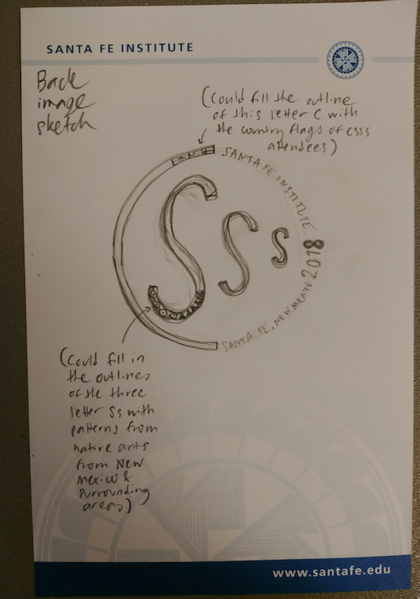 SANTA FE INSTITUTE
Back
image
sketch
(Could fill the outline
of this letter C with
the country flags of CSSS
attendees)
SANTA FE INSTITUTE
2018
SANTA FE, NEW MEXICO
S S S
(Could fill in
the outlines
of the three
letter Ss with
patterns from
native arts
from New
Mexico &
surrounding
areas)
www.santafe.edu